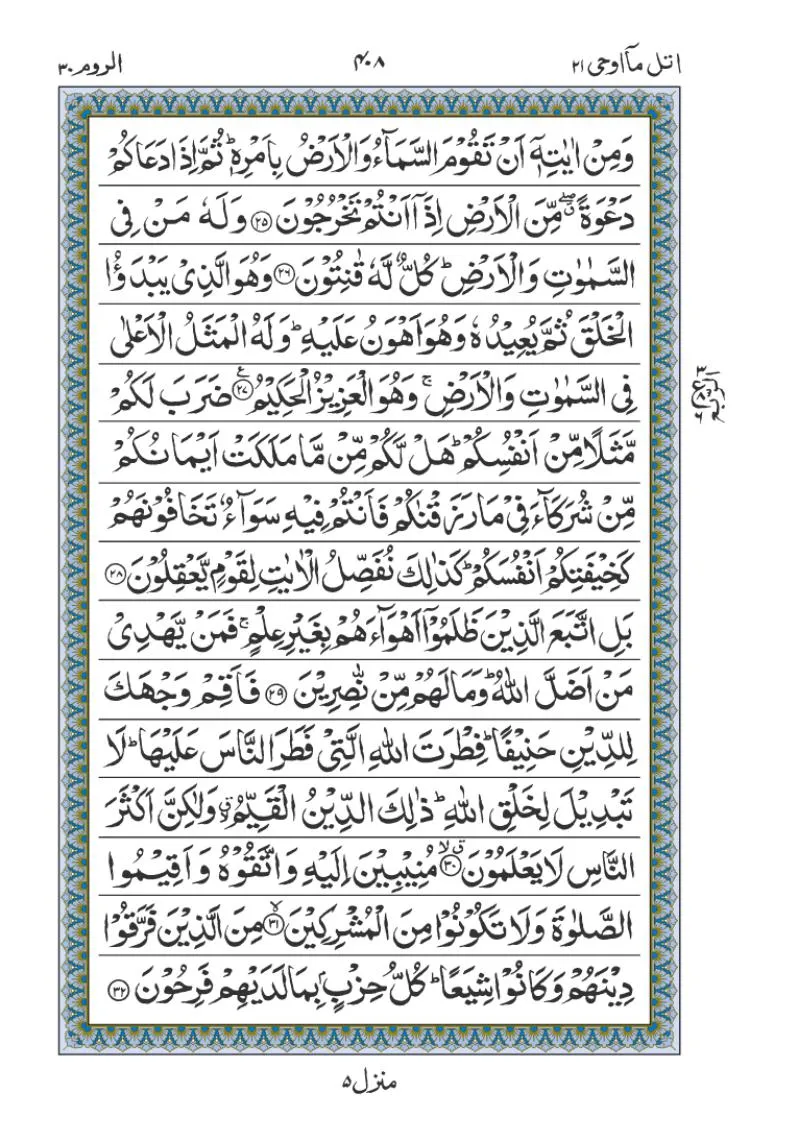 اتل مآاوحی ۲۱
۴۰۸
الروم ۳۰
وَمِنْ اٰيٰتِهٖٓ اَنْ تَقُوْمَ السَّمَآءُ وَالْاَرْضُ بِاَمْرِهٖ ؕ ثُمَّ اِذَا دَعَاكُمْ
دَعْوَةً ۖۗ مِّنَ الْاَرْضِ اِذَآ اَنْتُمْ تَخْرُجُوْنَ ﴿۲۵﴾ وَلَهٗ مَنْ فِی
السَّمٰوٰتِ وَالْاَرْضِ ؕ كُلٌّ لَّهٗ قٰنِتُوْنَ ﴿۲۶﴾ وَهُوَ الَّذِیْ يَبْدَؤُا
الْخَلْقَ ثُمَّ يُعِيْدُهٗ وَهُوَ اَهْوَنُ عَلَيْهِ ؕ وَلَهُ الْمَثَلُ الْاَعْلٰی
فِی السَّمٰوٰتِ وَالْاَرْضِ ۚ وَهُوَ الْعَزِيْزُ الْحَكِيْمُ ﴿۲۷﴾ ع ضَرَبَ لَكُمْ
مَّثَلًا مِّنْ اَنْفُسِكُمْ ؕ هَلْ لَّكُمْ مِّنْ مَّا مَلَكَتْ اَيْمَانُكُمْ
مِّنْ شُرَكَآءَ فِیْ مَا رَزَقْنٰكُمْ فَاَنْتُمْ فِيْهِ سَوَآءٌ تَخَافُوْنَهُمْ
كَخِيْفَتِكُمْ اَنْفُسَكُمْ ؕ كَذٰلِكَ نُفَصِّلُ الْاٰيٰتِ لِقَوْمٍ يَّعْقِلُوْنَ ﴿۲۸﴾
بَلِ اتَّبَعَ الَّذِيْنَ ظَلَمُوْۤا اَهْوَآءَهُمْ بِغَيْرِ عِلْمٍ ۚ فَمَنْ يَّهْدِیْ
مَنْ اَضَلَّ اللّٰهُ ؕ وَمَا لَهُمْ مِّنْ نّٰصِرِيْنَ ﴿۲۹﴾ فَاَقِمْ وَجْهَكَ
لِلدِّيْنِ حَنِيْفًا ؕ فِطْرَتَ اللّٰهِ الَّتِیْ فَطَرَ النَّاسَ عَلَيْهَا ؕ لَا
تَبْدِيْلَ لِخَلْقِ اللّٰهِ ؕ ذٰلِكَ الدِّيْنُ الْقَيِّمُ ۙۗ وَلٰكِنَّ اَكْثَرَ
النَّاسِ لَا يَعْلَمُوْنَ ﴿۳۰﴾ ۗۙ مُنِيْبِيْنَ اِلَيْهِ وَاتَّقُوْهُ وَاَقِيْمُوا
الصَّلٰوةَ وَلَا تَكُوْنُوْا مِنَ الْمُشْرِكِيْنَ ﴿۳۱﴾ ۙ مِنَ الَّذِيْنَ فَرَّقُوْا
دِيْنَهُمْ وَكَانُوْا شِيَعًا ؕ كُلُّ حِزْبٍۭ بِمَا لَدَيْهِمْ فَرِحُوْنَ ﴿۳۲﴾
منزل ۵